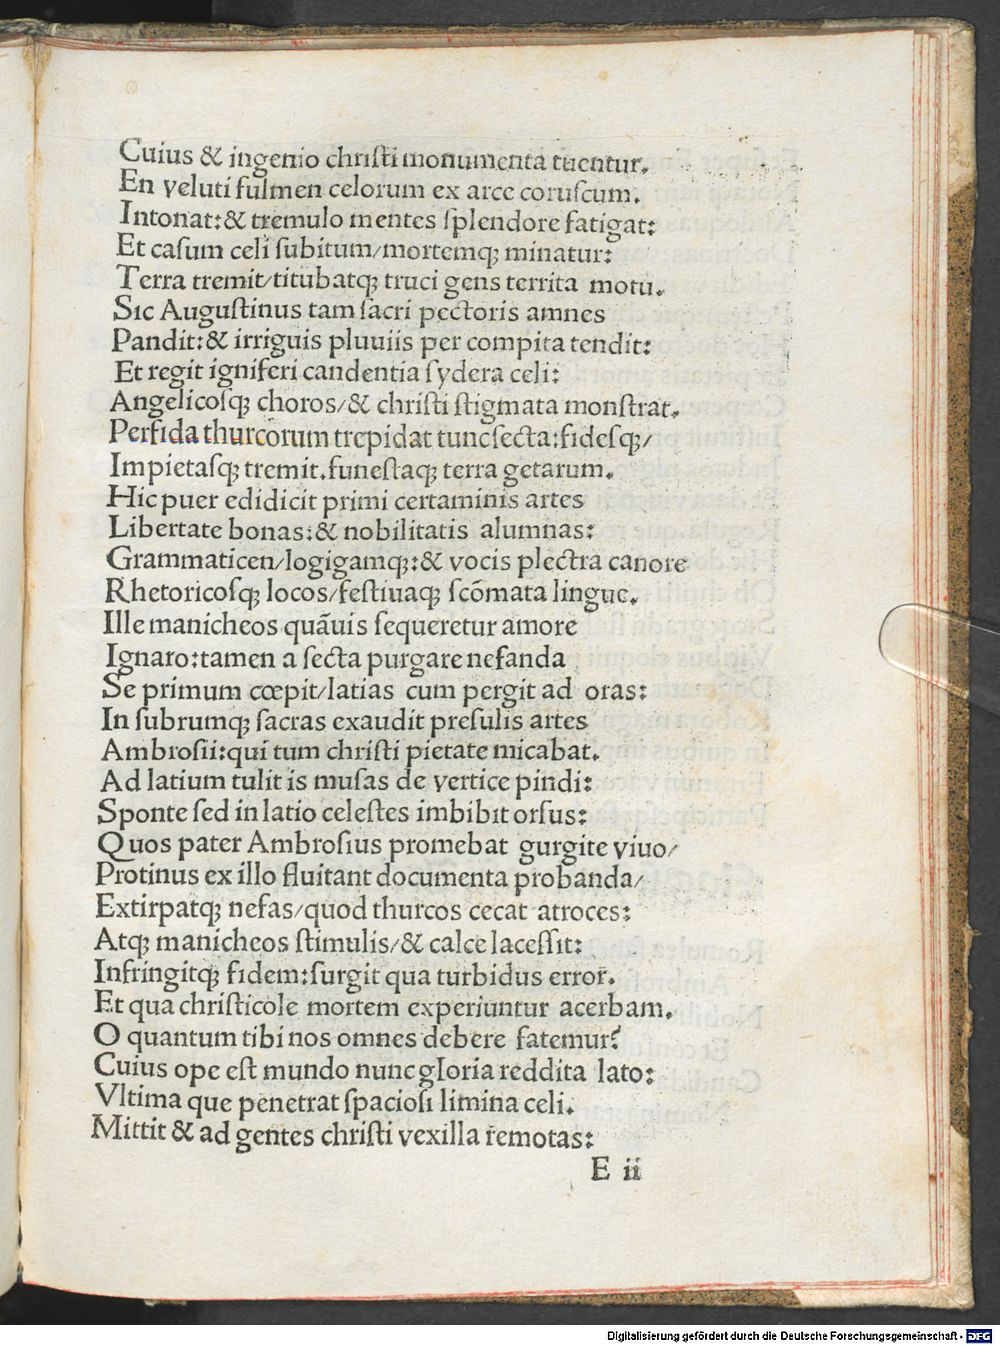 Cuius & ingenio chriſti monumenta tuentur.
En veluti fulmen celorum ex arce coruſcum.
Intonat:& tremulo mentes ſplendore fatigat:
Et caſum celi ſubitum/mortemq; minatur:
Terra tremit/titubatq; truci gens territa motu.
Sic Auguſtinus tam ſacri pectoris amnes
Pandit:& irriguis pluuiis per compita tendit:
Et regit igniferi candentia ſydera celi:
Angelicoſq; choros/& chriſti ſtigmata monſtrat.
Perfida thurcorum trepidat tunc ſecta:fideſq;/
Impietaſq; tremit.funeſtaq; terra getarum.
Hic puer edidicit primi certaminis artes
Libertate bonas:& nobilitatis alumnas:
Grammaticen/logigamq;:& vocis plectra canore
Rhetoricoſq; locos/feſtiuaq; ſcōmata lingue.
Ille manicheos quāuis ſequeretur amore
Ignaro:tamen a ſecta purgare nefanda
Se primum cœpit/latias cum pergit ad oras:
In ſubrumq; ſacras exaudit preſulis artes
Ambroſii:qui tum chriſti pietate micabat.
Ad latium tulit is muſas de vertice pindi:
Sponte ſed in latio celeſtes imbibit orſus:
Quos pater Ambroſius promebat gurgite viuo/
Protinus ex illo fluitant documenta probanda/
Extirpatq; nefas/quod thurcos cecat atroces:
Atq; manicheos ſtimulis/& calce laceſſit:
Infringitq; fidem:ſurgit qua turbidus error.
Et qua chriſticole mortem experiuntur acerbam.
O quantum tibi nos omnes debere fatemur?
Cuius ope eſt mundo nunc gloria reddita lato:
Vltima que penetrat ſpacioſi limina celi.
Mittit & ad gentes chriſti vexilla remotas:
E ii
Digitalisierung gefördert durch die Deutsche Forschungsgemeinschaft - DFG